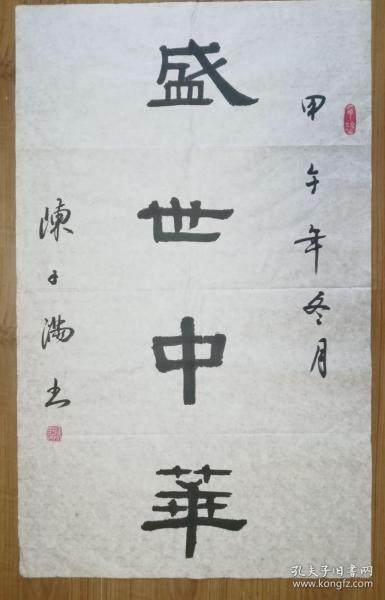 甲午年冬月
盛世中華
陳子滿书
孔夫子旧书网